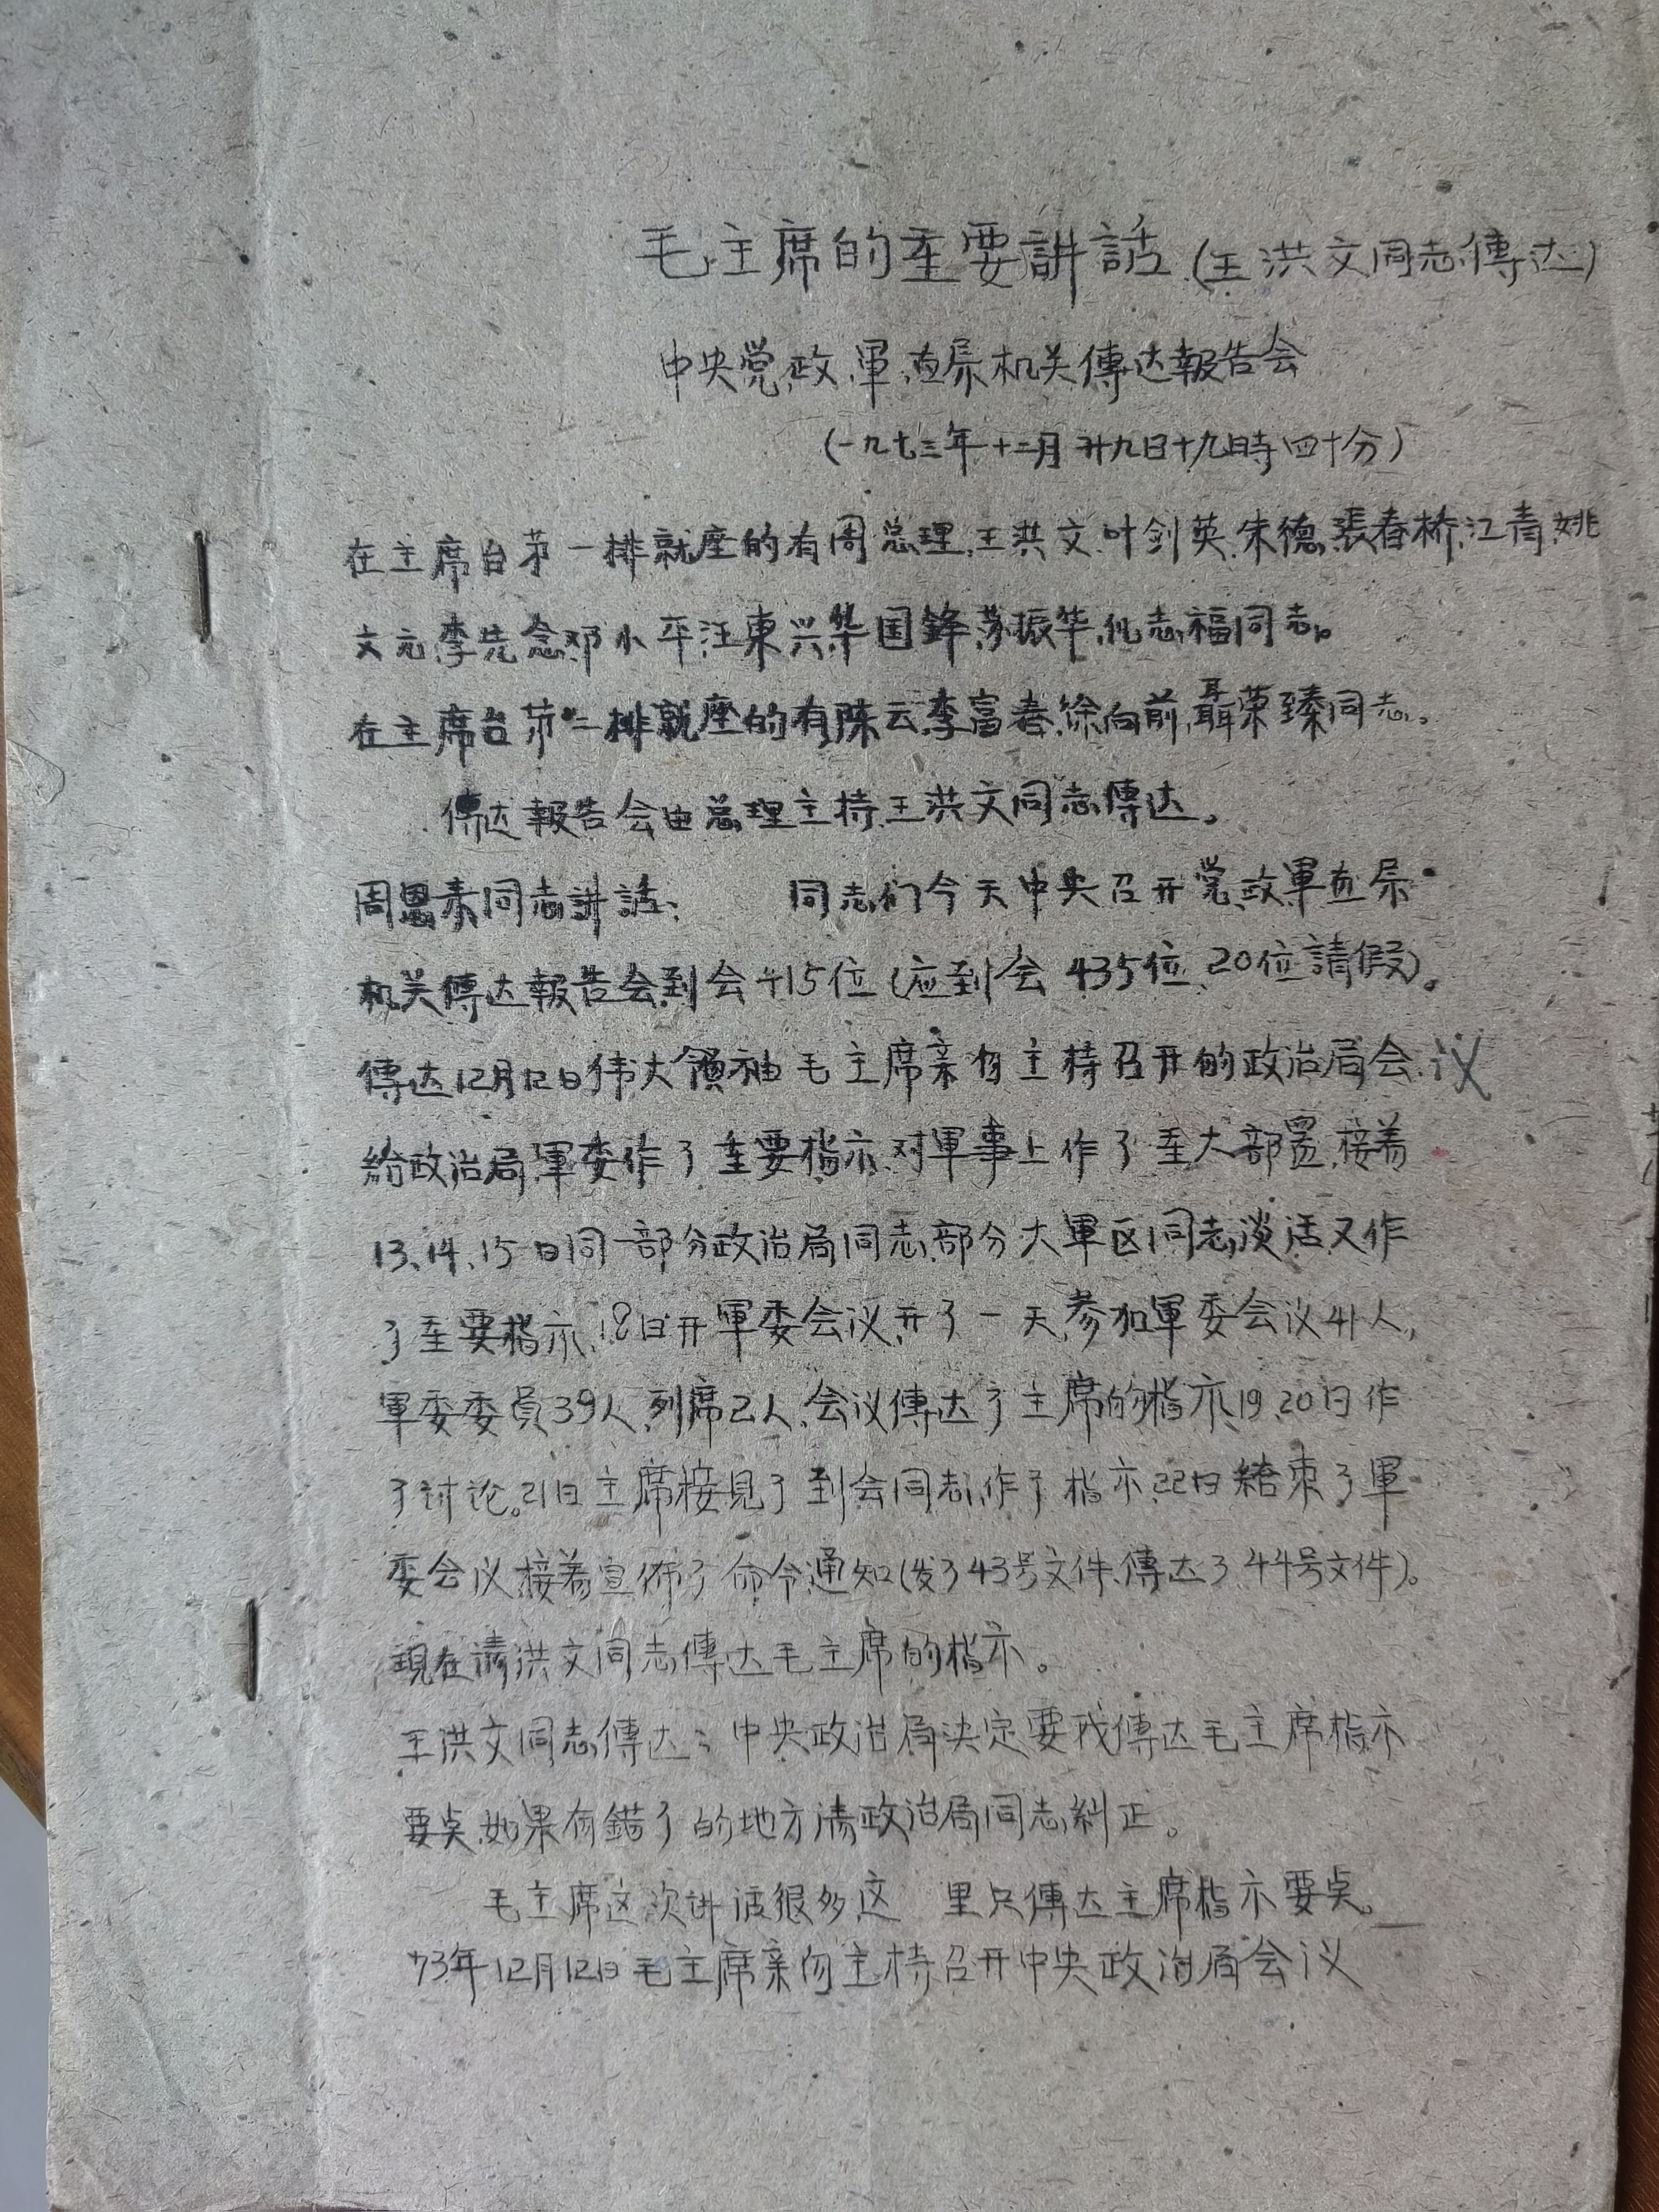 毛主席的重要講話(王洪文同志傳达)
中央党、政、軍、直属机关傳达報告会
(一九七三年十二月廿九日十九時四十分)
在主席台第一排就座的有周总理、王洪文、叶剑英、朱德、張春桥、江青、姚
文元、李先念、邓小平、汪東兴、华国鋒、苏振华、倪志福同志。
在主席台第二排就座的有陈云、李富春、徐向前、聶荣臻同志。
傳达報告会由总理主持、王洪文同志傳达。
周恩来同志讲話: 同志们今天中央召开党政軍直属
机关傳达報告会,到会415位(应到会435位、20位請假)。
傳达12月12日伟大領袖毛主席亲自主持召开的政治局会议
給政治局、軍委作了重要指示、对軍事上作了重大部置、接着
13、14、15日同一部分政治局同志、部分大軍区同志談活又作
了重要指示、18日开軍委会议、开了一天、参加軍委会议41人,
軍委委員39人、列席2人、会议傳达了主席的指示、19、20日作
了讨论。21日主席接見了到会同志、作了指示、22日結束了軍
委会议、接着宣佈了命令、通知(发了43号文件、傳达了44号文件)。
現在请洪文同志傳达毛主席的指示。
王洪文同志傳达: 中央政治局决定要我傳达毛主席指示
要点、如果有錯了的地方请政治局同志糾正。
毛主席这次讲话很多、这 里只傳达主席指示要点。
73年12月12日毛主席亲自主持召开中央政治局会议